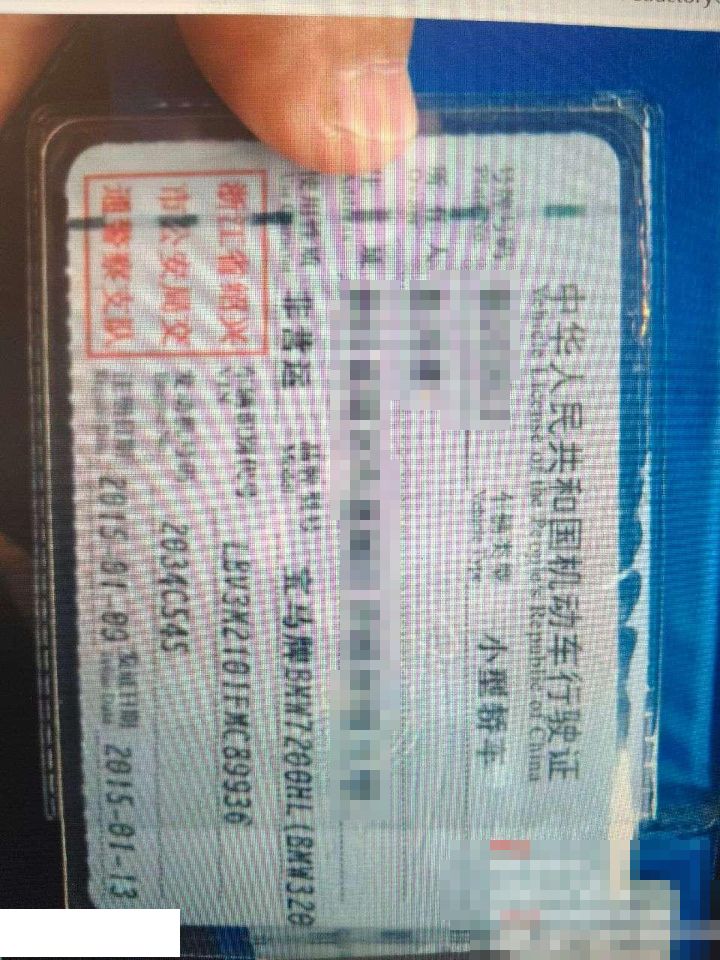 中华人民共和国机动车行驶证
Vehicle License of the People's Republic of China
号牌号码 车辆类型 小型轿车
Vehicle Type
所有人
住址
使用性质 非营运 品牌型号 宝马牌BMW7200HL(BMW320
Model
浙江省绍兴
市公安局交
通警察支队
车辆识别代号 LBV3M2101EMC89936
VIN
发动机号码 2034C545
注册日期 2015-01-09 发证日期 2015-01-13